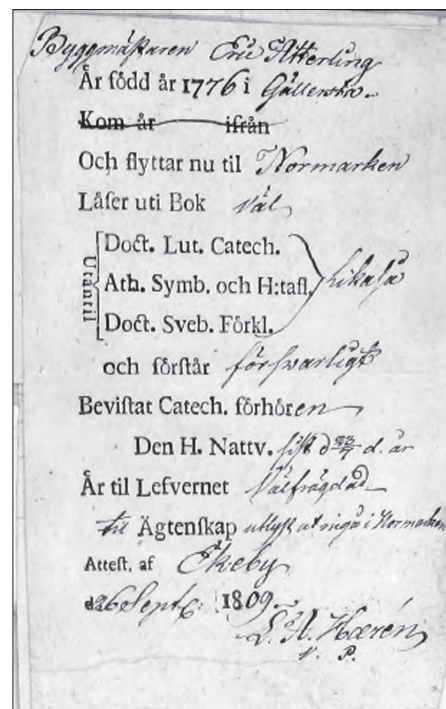 Byggmästaren Eric Atterling
Är född år 1776 i Gällersta.
Kom år ifrån
Och flyttar nu til Normarken
Läſer uti Bok väl
Utantil
Doct. Lut. Catech.
Ath. Symb. och H:tafl. likaså
Doct. Sveb. Förkl.
och förſtår förſvarligt
Beviſtat Catech. förhören
Den H. Nattv. ſiſt d 23/7 d. år
Är til Lefvernet välfrägdad
til Ägtenſkap utlyſt at ingå i Normarken
Atteſt. af Ekeby
d. 26 Sept: 1809.
Hærén
V. P.